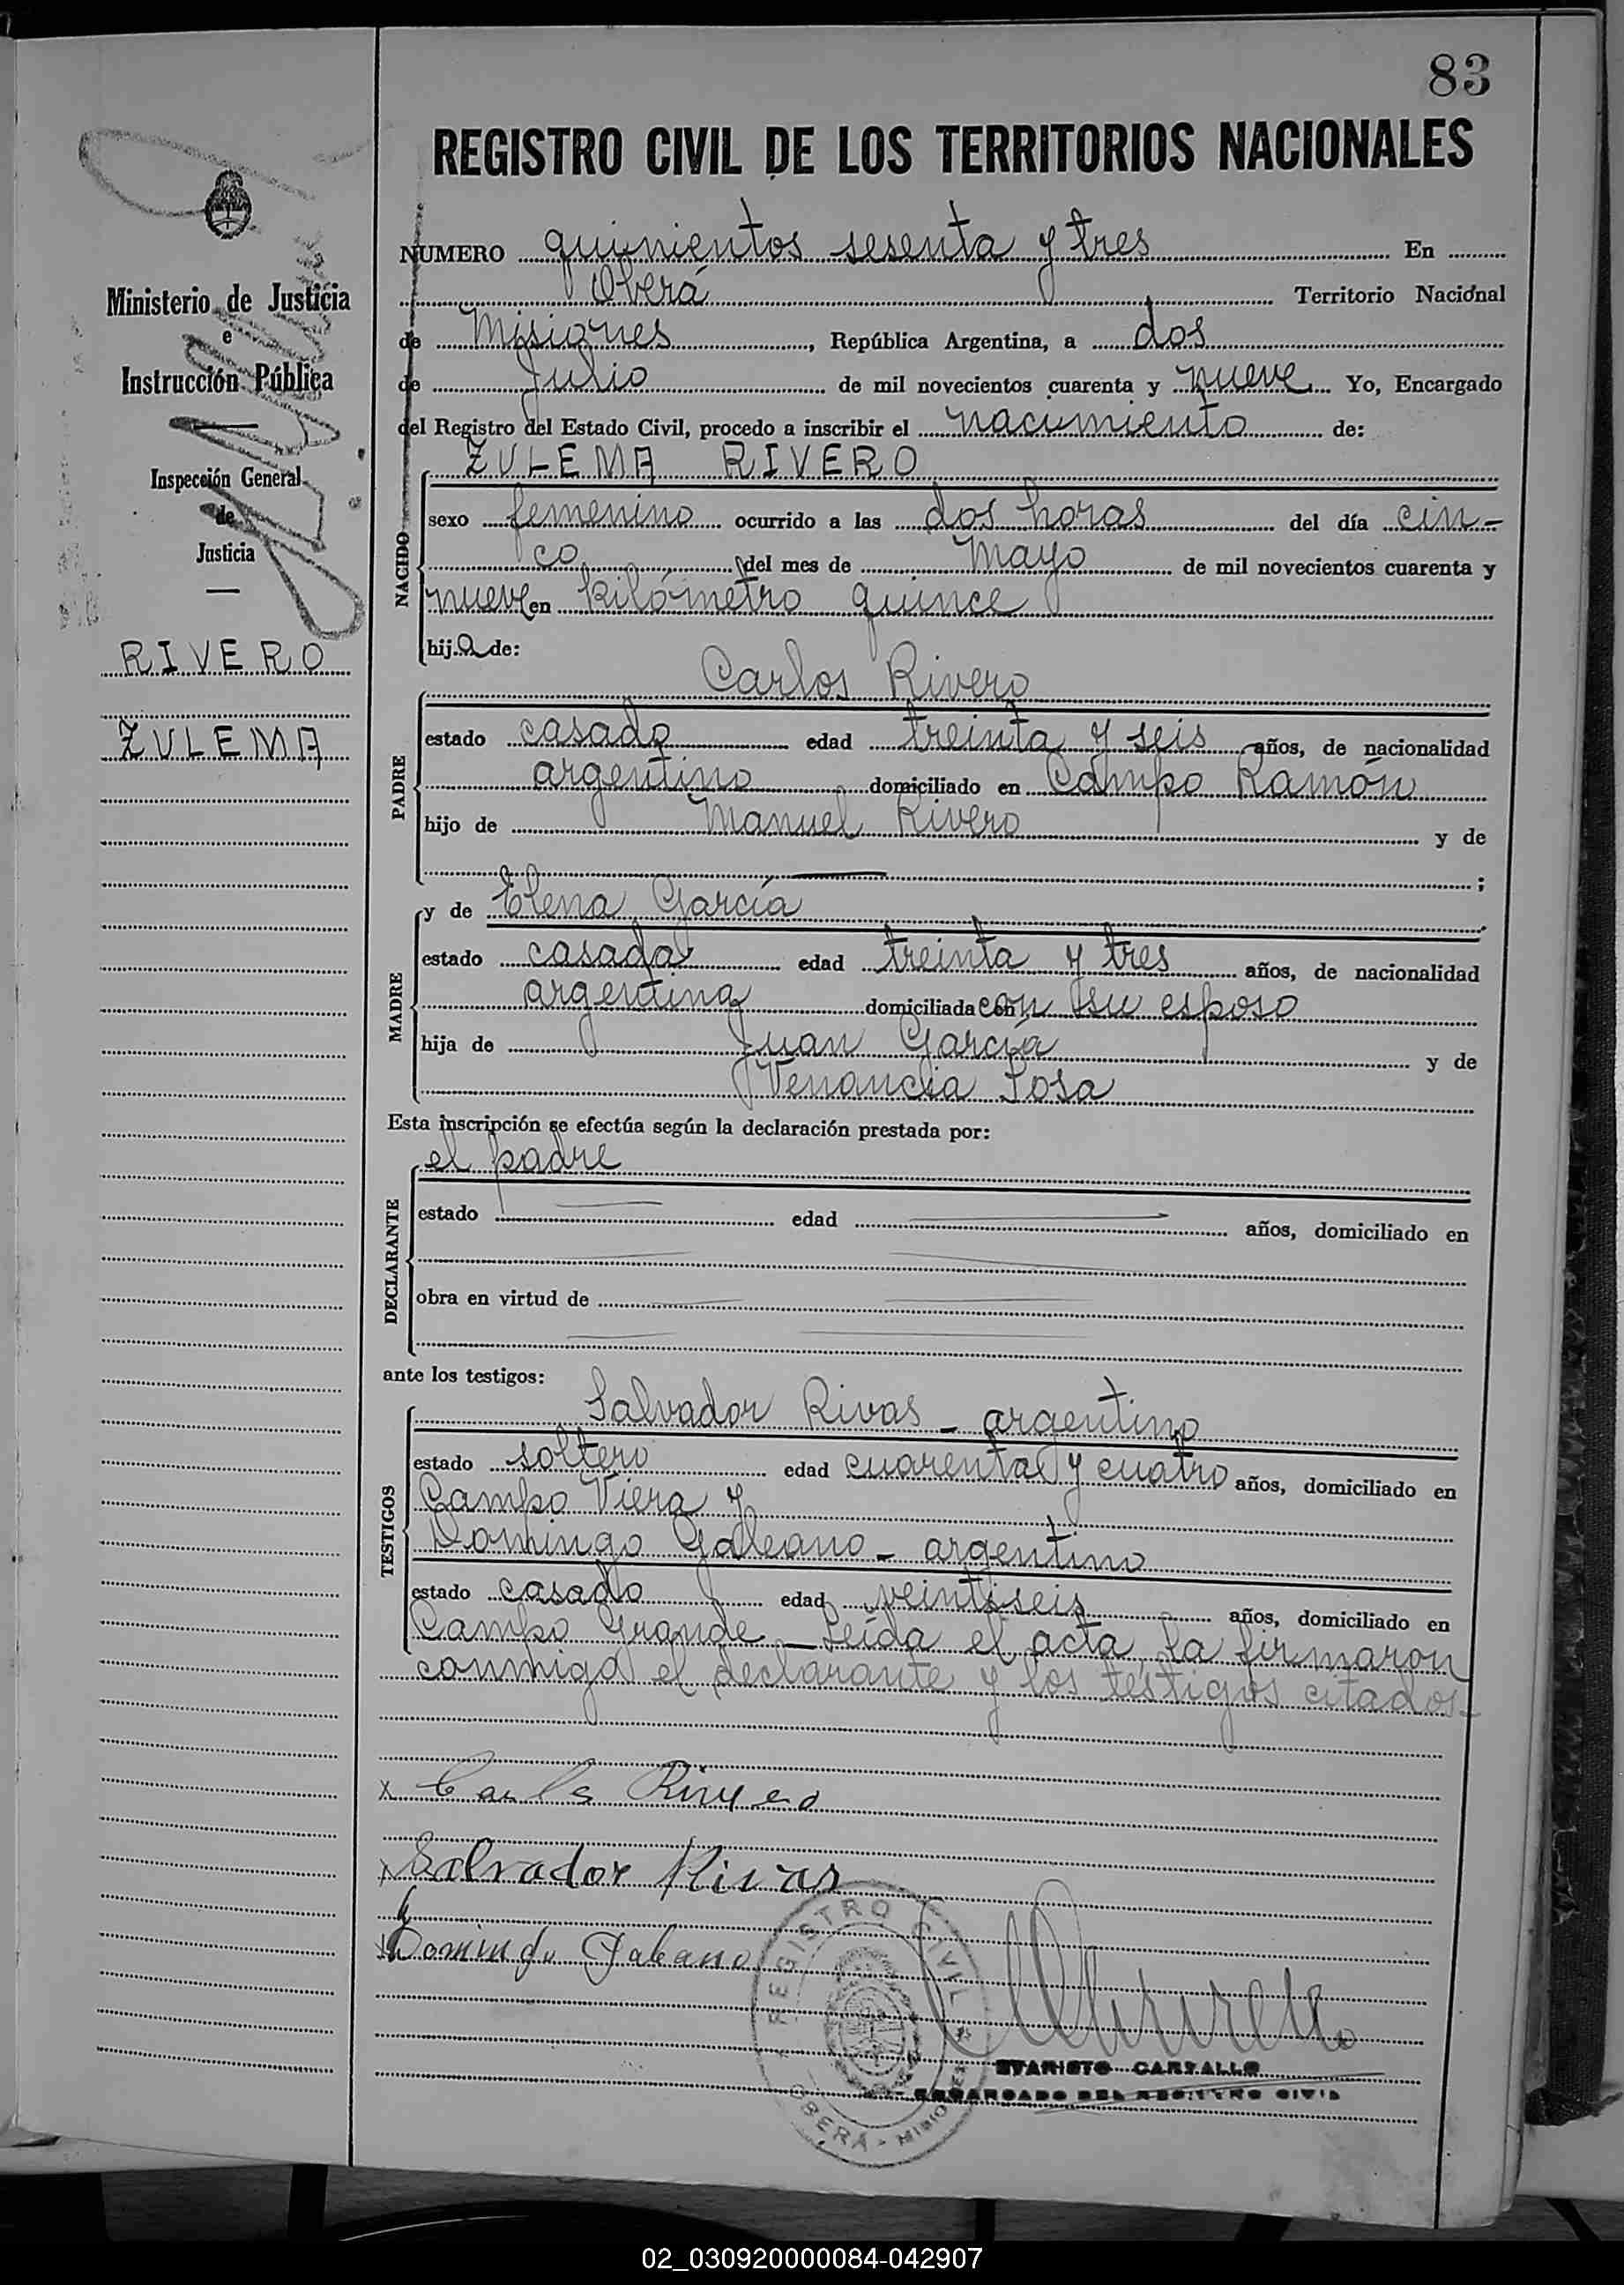 83
REGISTRO CIVIL DE LOS TERRITORIOS NACIONALES
Ministerio de Justicia
e
Instrucción Pública
Inspección General
de
Justicia
RIVERO
ZULEMA
NUMERO quinientos sesenta y tres En
Oberá Territorio Nacional
de Misiones, República Argentina, a dos
de Julio de mil novecientos cuarenta y nueve Yo, Encargado
del Registro del Estado Civil, procedo a inscribir el nacimiento de:
NACIDO
ZULEMA RIVERO
sexo femenino ocurrido a las dos horas del día cin-
co del mes de Mayo de mil novecientos cuarenta y
nueve en kilómetro quince
hija de:
PADRE
Carlos Rivero
estado casado edad treinta y seis años, de nacionalidad
argentino domiciliado en Campo Ramón
hijo de Manuel Rivero y de
;
MADRE
y de Elena García
estado casada edad treinta y tres años, de nacionalidad
argentina domiciliada con su esposo
hija de Juan García y de
Venancia Sosa
Esta inscripción se efectúa según la declaración prestada por:
DECLARANTE
el padre
estado edad años, domiciliado en
obra en virtud de
ante los testigos:
TESTIGOS
Salvador Rivas - argentino
estado soltero edad cuarenta y cuatro años, domiciliado en
Campo Viera y
Domingo Galeano - argentino
estado casado edad veintiseis años, domiciliado en
Campo Grande - Leída el acta, la firmaron
conmigo el declarante y los testigos citados-
x Carlos Rivero
x Salvador Rivas
x Domingo Galeano
REGISTRO CIVIL
OBERÁ - MISIONES
EVARISTO CARVALLO
ENCARGADO DEL REGISTRO CIVIL
02_030920000084-042907